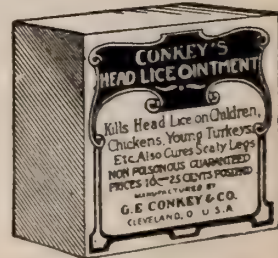 CONKEY'S
HEAD LICE OINTMENT
Kills Head Lice on Children,
Chickens, Young Turkeys
Etc. Also Cures Scaly Legs
NON POISONOUS GUARANTEED
PRICES 10¢—25 CENTS POSTPAID
MANUFACTURED BY
G.E CONKEY & CO.
CLEVELAND, O U.S.A.